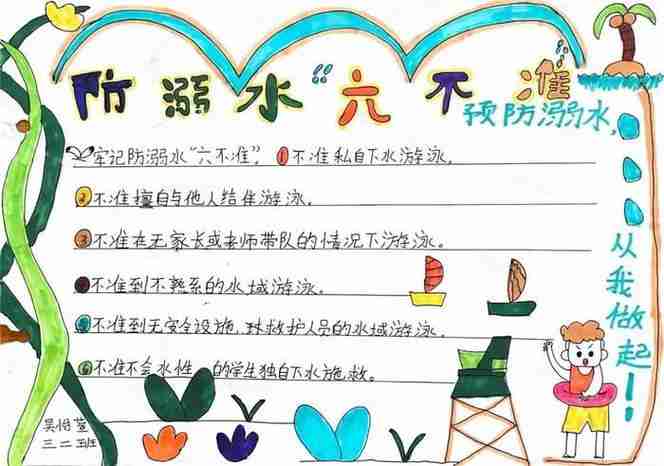 防溺水“六不准
预防溺水,
从我做起!
牢记防溺水“六不准”, 1不准私自下水游泳.
2不准擅自与他人结伴游泳.
3不准在无家长或老师带队的情况下游泳。
不准到不熟系的水域游泳.
5不准到无安全设施, 救护人员的水域游泳.
6不准不会水性、的学生独自下水施救。
三二班